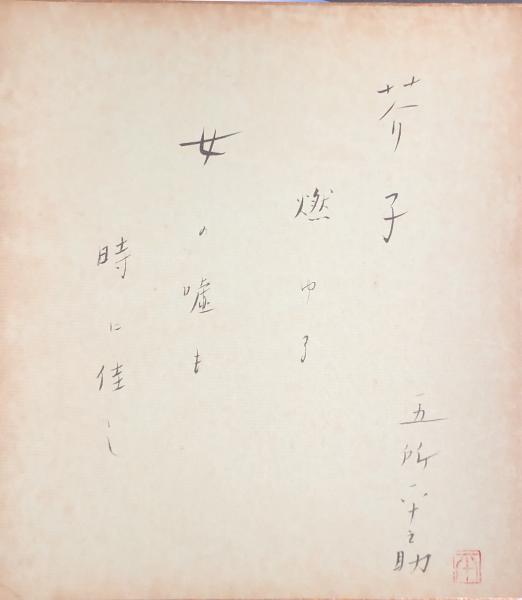 芥子
燃ゆる
女の嘘も
時に佳し
五所平之助